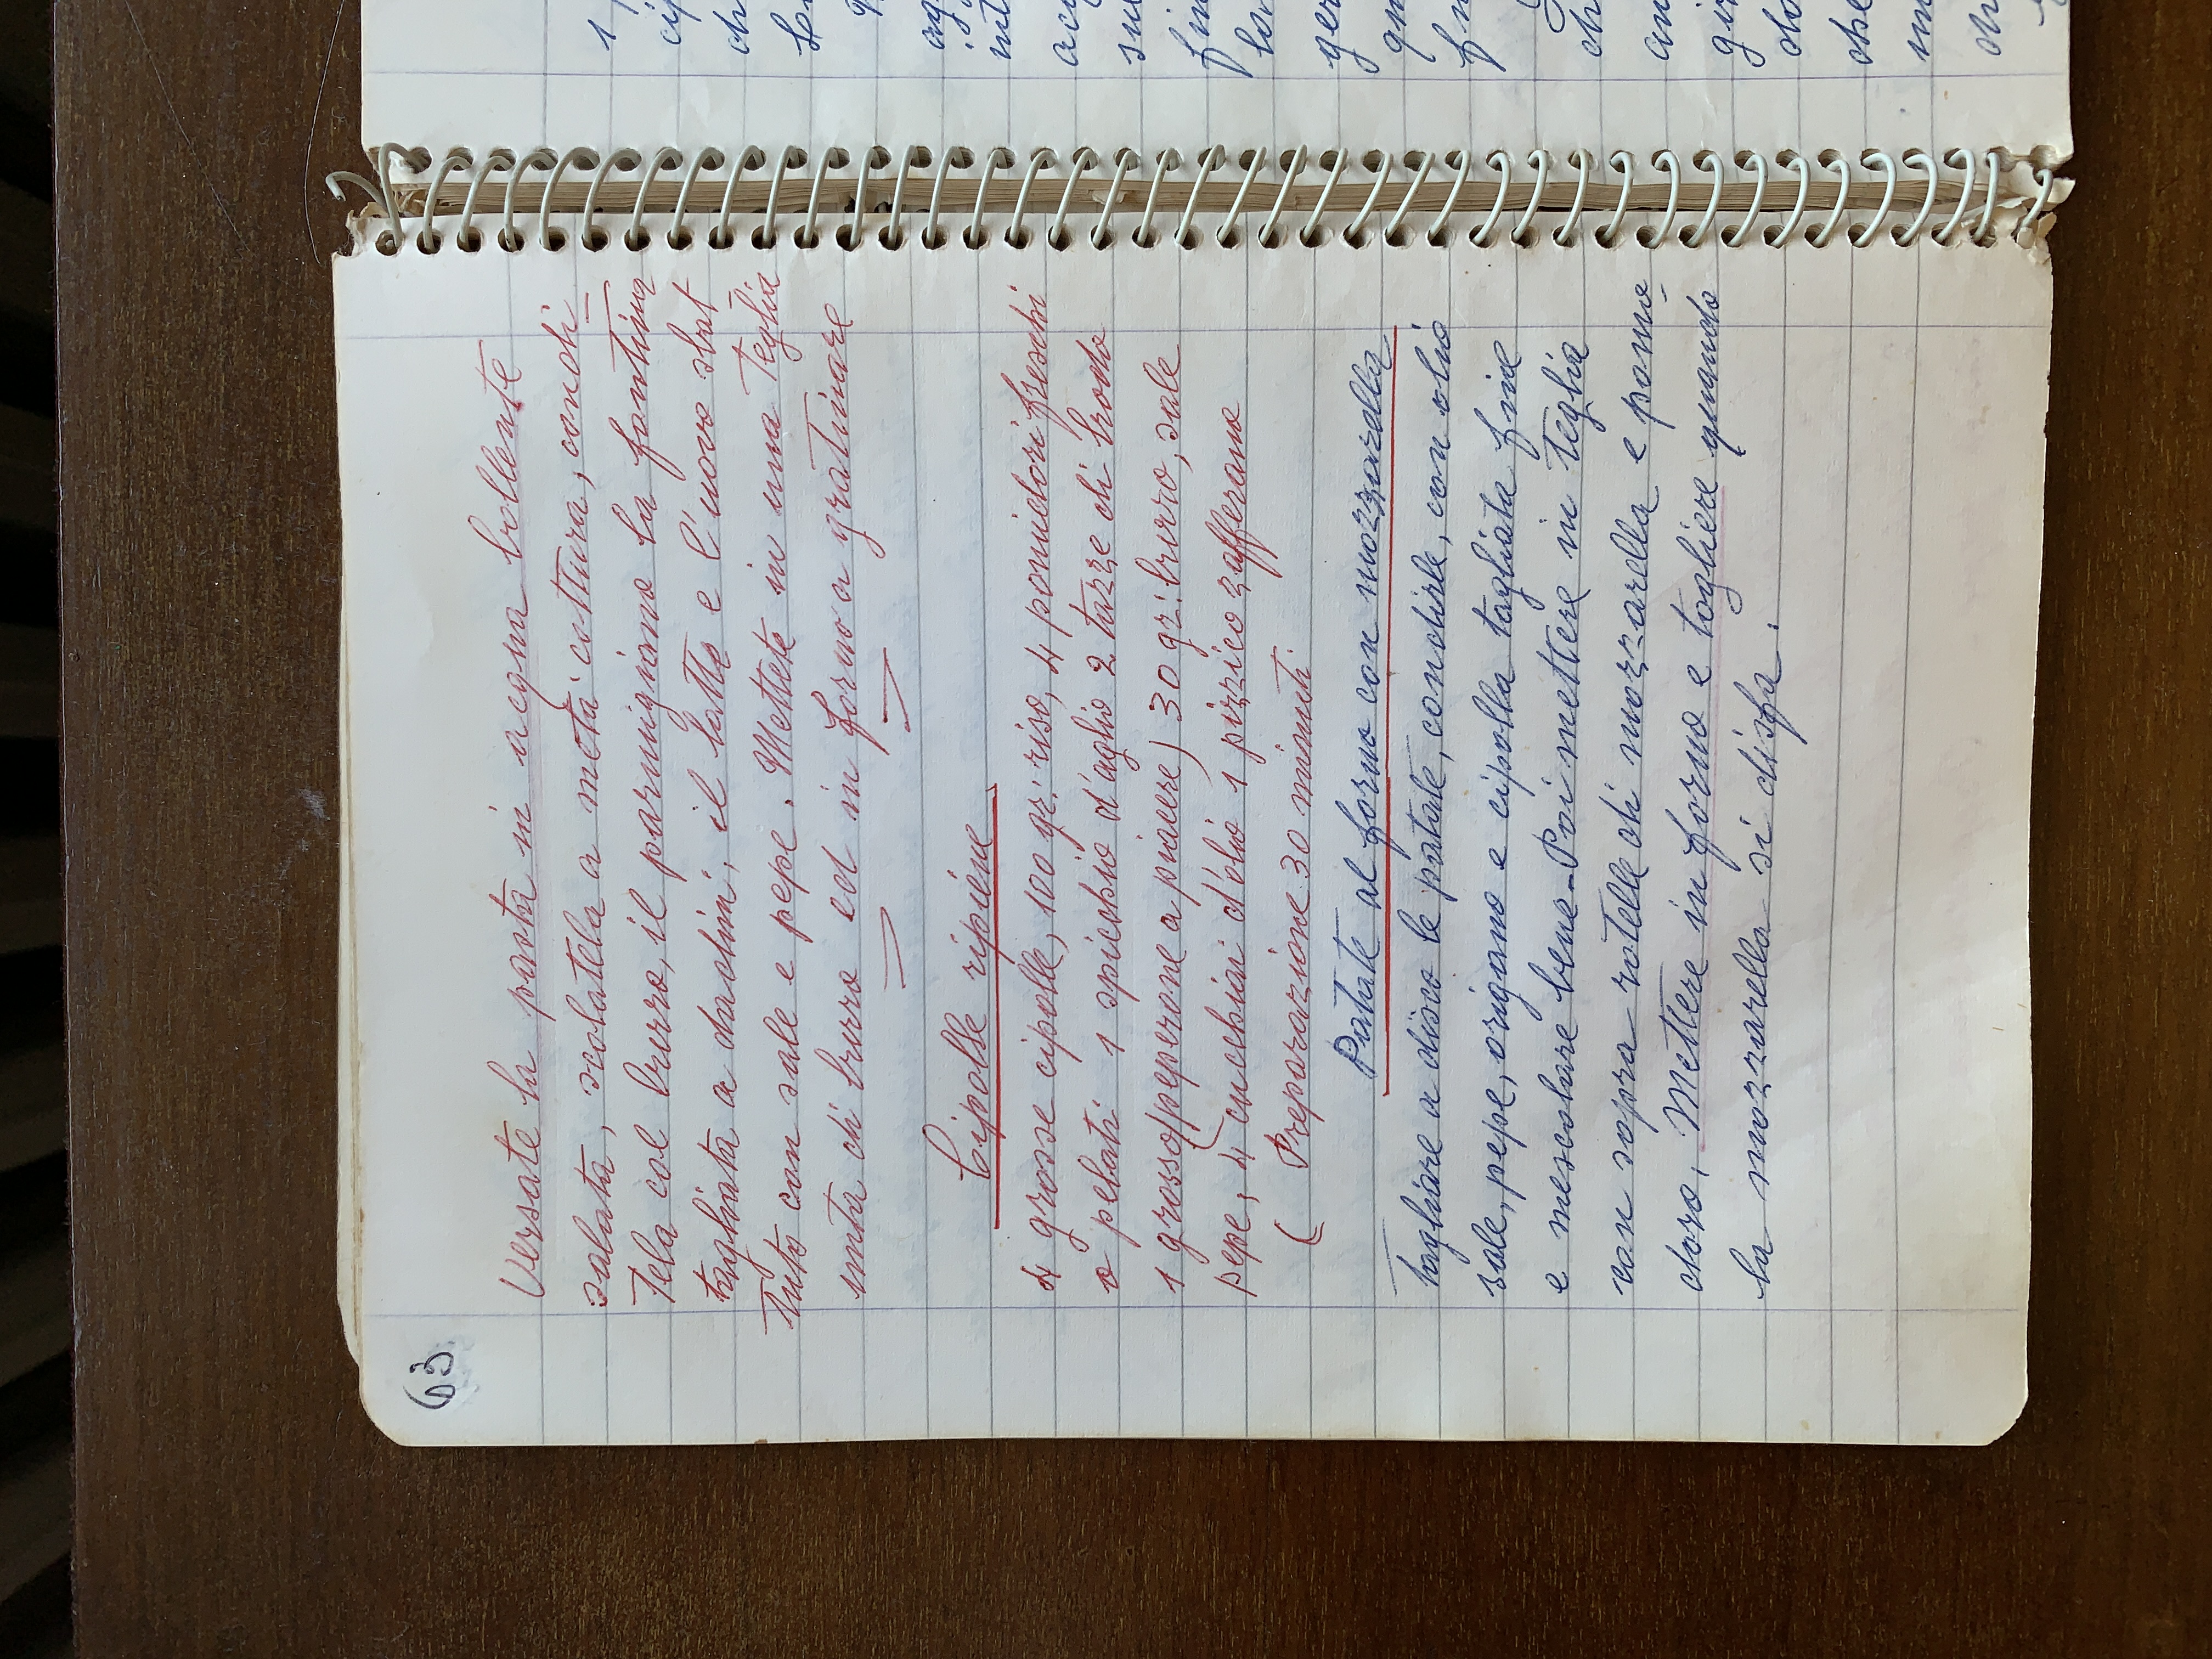 63
Versate la pasta in acqua bollente
salata, scolatela a metà cottura, condi-
tela col burro, il parmigiano la fontina
tagliata a dadini, il latte e l'uovo sbat-
tuto con sale e pepe. Mettete in una teglia
unta di burro ed in forno a gratinare
Cipolle ripiene
4 grosse cipolle, 100 gr: riso, 4 pomidori freschi
o pelati 1 spicchio d'aglio 2 tazze di brodo
1 grosso (peperone a piacere) 30 gr: burro, sale
pepe, 4 cucchiai d'olio 1 pizzico zafferano
( Preparazione 30 minuti
Patate al forno con mozzarella
Tagliare a disco le patate, condirle, con olio
sale, pepe, origano e cipolla tagliata fine
e mescolare bene - Poi mettere in teglia
con sopra rotelle di mozzarella e pomo-
doro, Mettere in forno e togliere quando
la mozzarella si disfa.